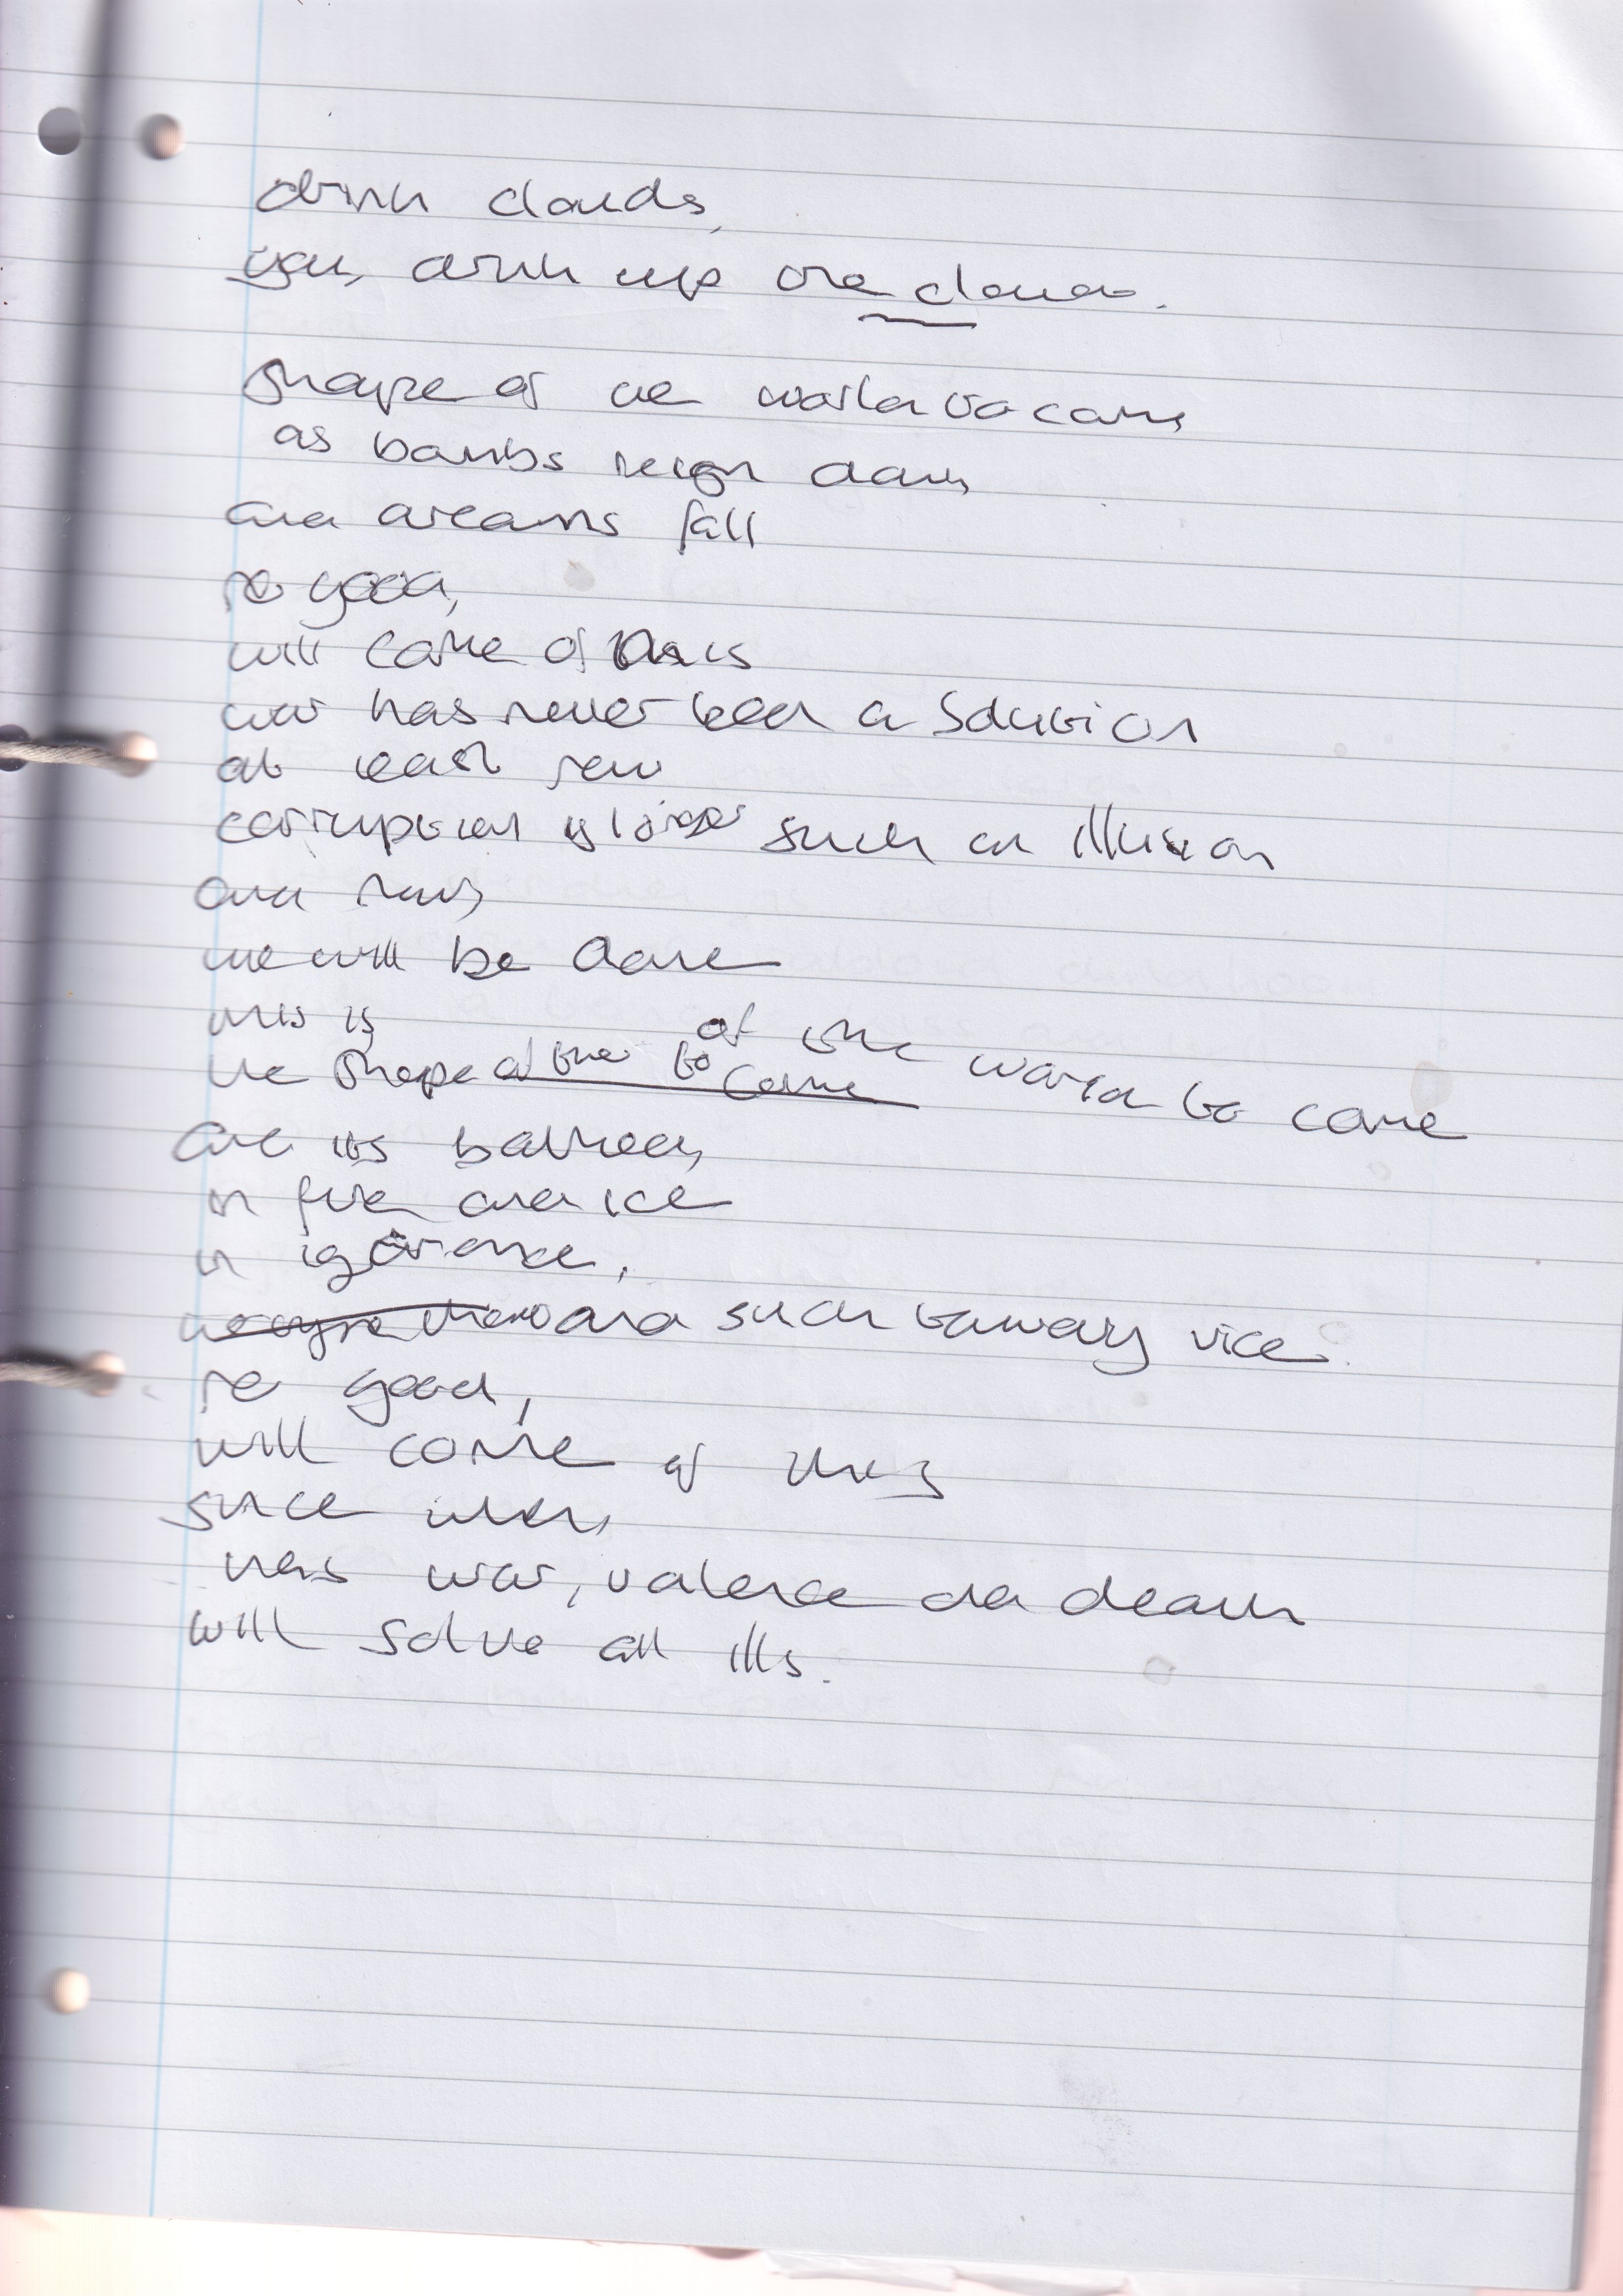 drink clouds,
you, drink up the clouds.
Shape of the world to come
as bombs reign down
and dreams fall
no good,
will come of this
war has never been a Solution
at least now
corruption is longer such an illusion
and now,
we will be done
this is
the shape of the to come of the world to come
and its bathed,
in fire and ice
in ignorance,
and such tawdry vice.
no good,
will come of this
since when,
has war, violence and death
will solve all ills.